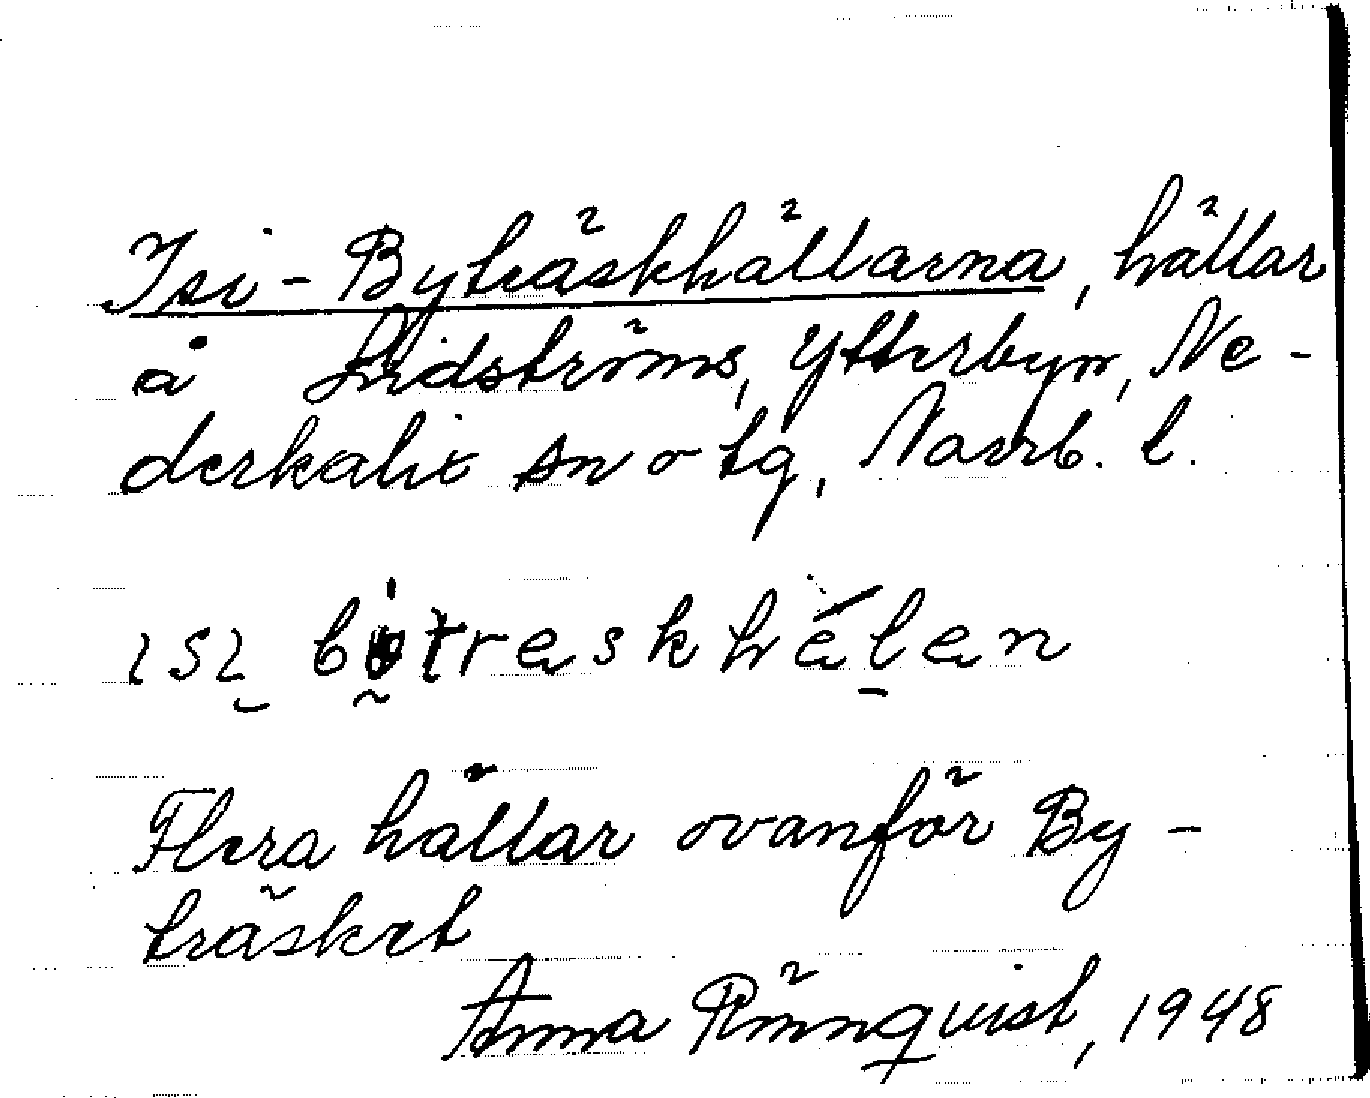 Isi-Byträskhällarna, hällar
å Lidströms, Ytterbyn, Ne-
derkalix sn o tg, Norrb. l.
ısı bıtreskhelen
Flera hällar ovanför By-
träsket
Anna Rönnqvist, 1948